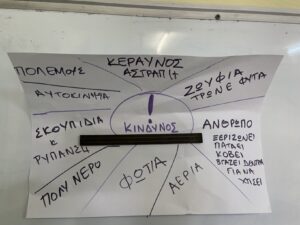 ΚΕΡΑΥΝΟΣ
ΑΣΤΡΑΠΗ
ΠΟΛΕΜΟΣ
ΑΥΤΟΚΙΝΗΤΑ
ΣΚΟΥΠΙΔΙΑ
Κ
ΡΥΠΑΝΣΗ
ΠΟΛΥ ΝΕΡΟ
ΦΩΤΙΑ
ΑΕΡΙΑ
!
ΚΙΝΔΥΝΟΣ
ΖΩΥΦΙΑ
ΤΡΩΝΕ ΦΥΤΑ
ΑΝΘΡΩΠΟ
ΞΕΡΙΖΩΝΕΙ
ΠΑΤΑΕΙ
ΚΟΒΕΙ
ΒΓΑΖΕΙ ΔΕΝΤΡΑ
ΓΙΑ ΝΑ
ΧΤΙΣΕΙ